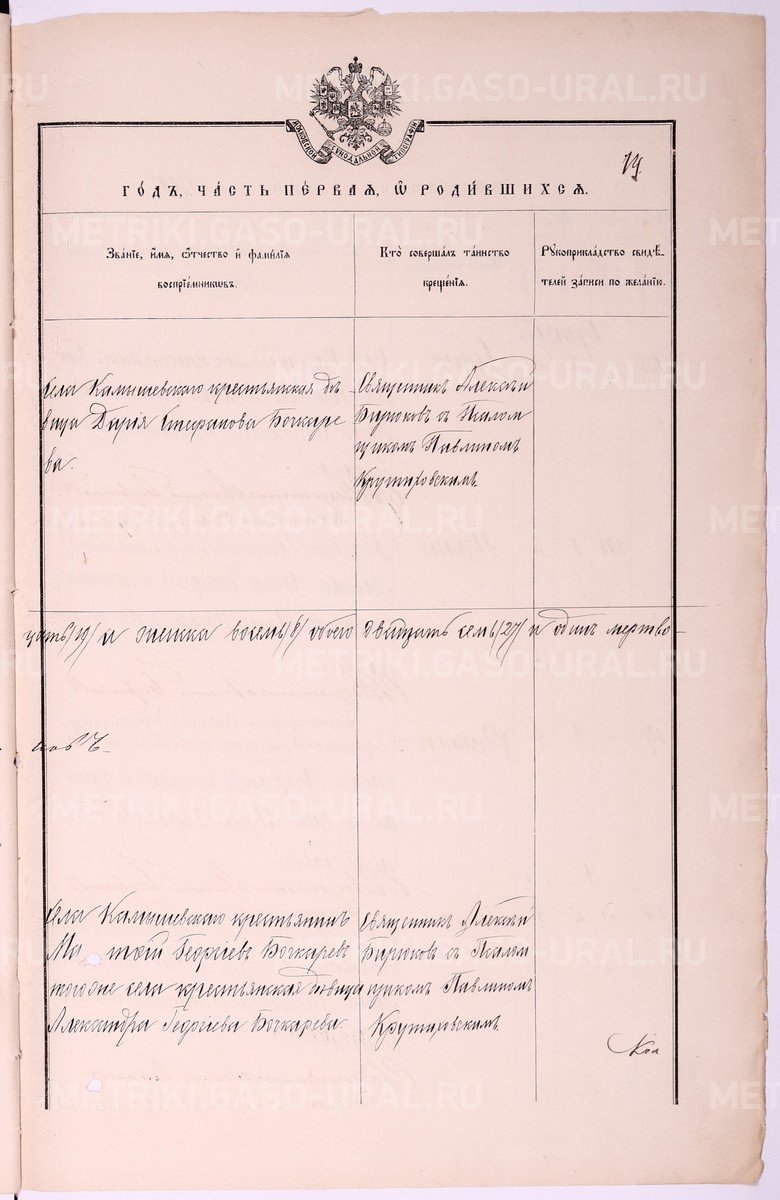 МОСКОВСКОЙ СѴНОДАЛЬНОЙ ТИПОГРАФІИ
79.
ГО́ДЪ, ЧА́СТЬ ПЕ́РВАЯ, Ѡ҆ РОДИ́ВШИХСЯ.
Зва́нїе, и҆́мя, ѻ҆́тчество и҆ фами́лїя
воспрїе́мникѡвъ.
Кто̀ соверша́лъ та́инство
креще́нїя.
Рꙋкоприкла́дство свидѣ́-
телей за́писи по жела́нїю.
Села Камышевскаго крестьянская дѣ
вица Дарія Стефанова Бочкаре
ва.
Священникъ Алексѣй
Бирюковъ съ Псалом
щикомъ Павлиномъ
Крутиховскимъ
цать/19/ и женска восемь/8/ обоего двадцать семь/27/ и одинъ мертво-
Села Камышевскаго крестьянинъ
Георгіевъ Бочкаревъ
тогоже села крестьянская дѣвица
Александра Георгіева Бочкарева.
Священникъ Алексѣй
Бирюковъ съ Псалом
щикомъ Павлиномъ
Крутиховскимъ.
Кол
METRIKI.GASO-URAL.RU